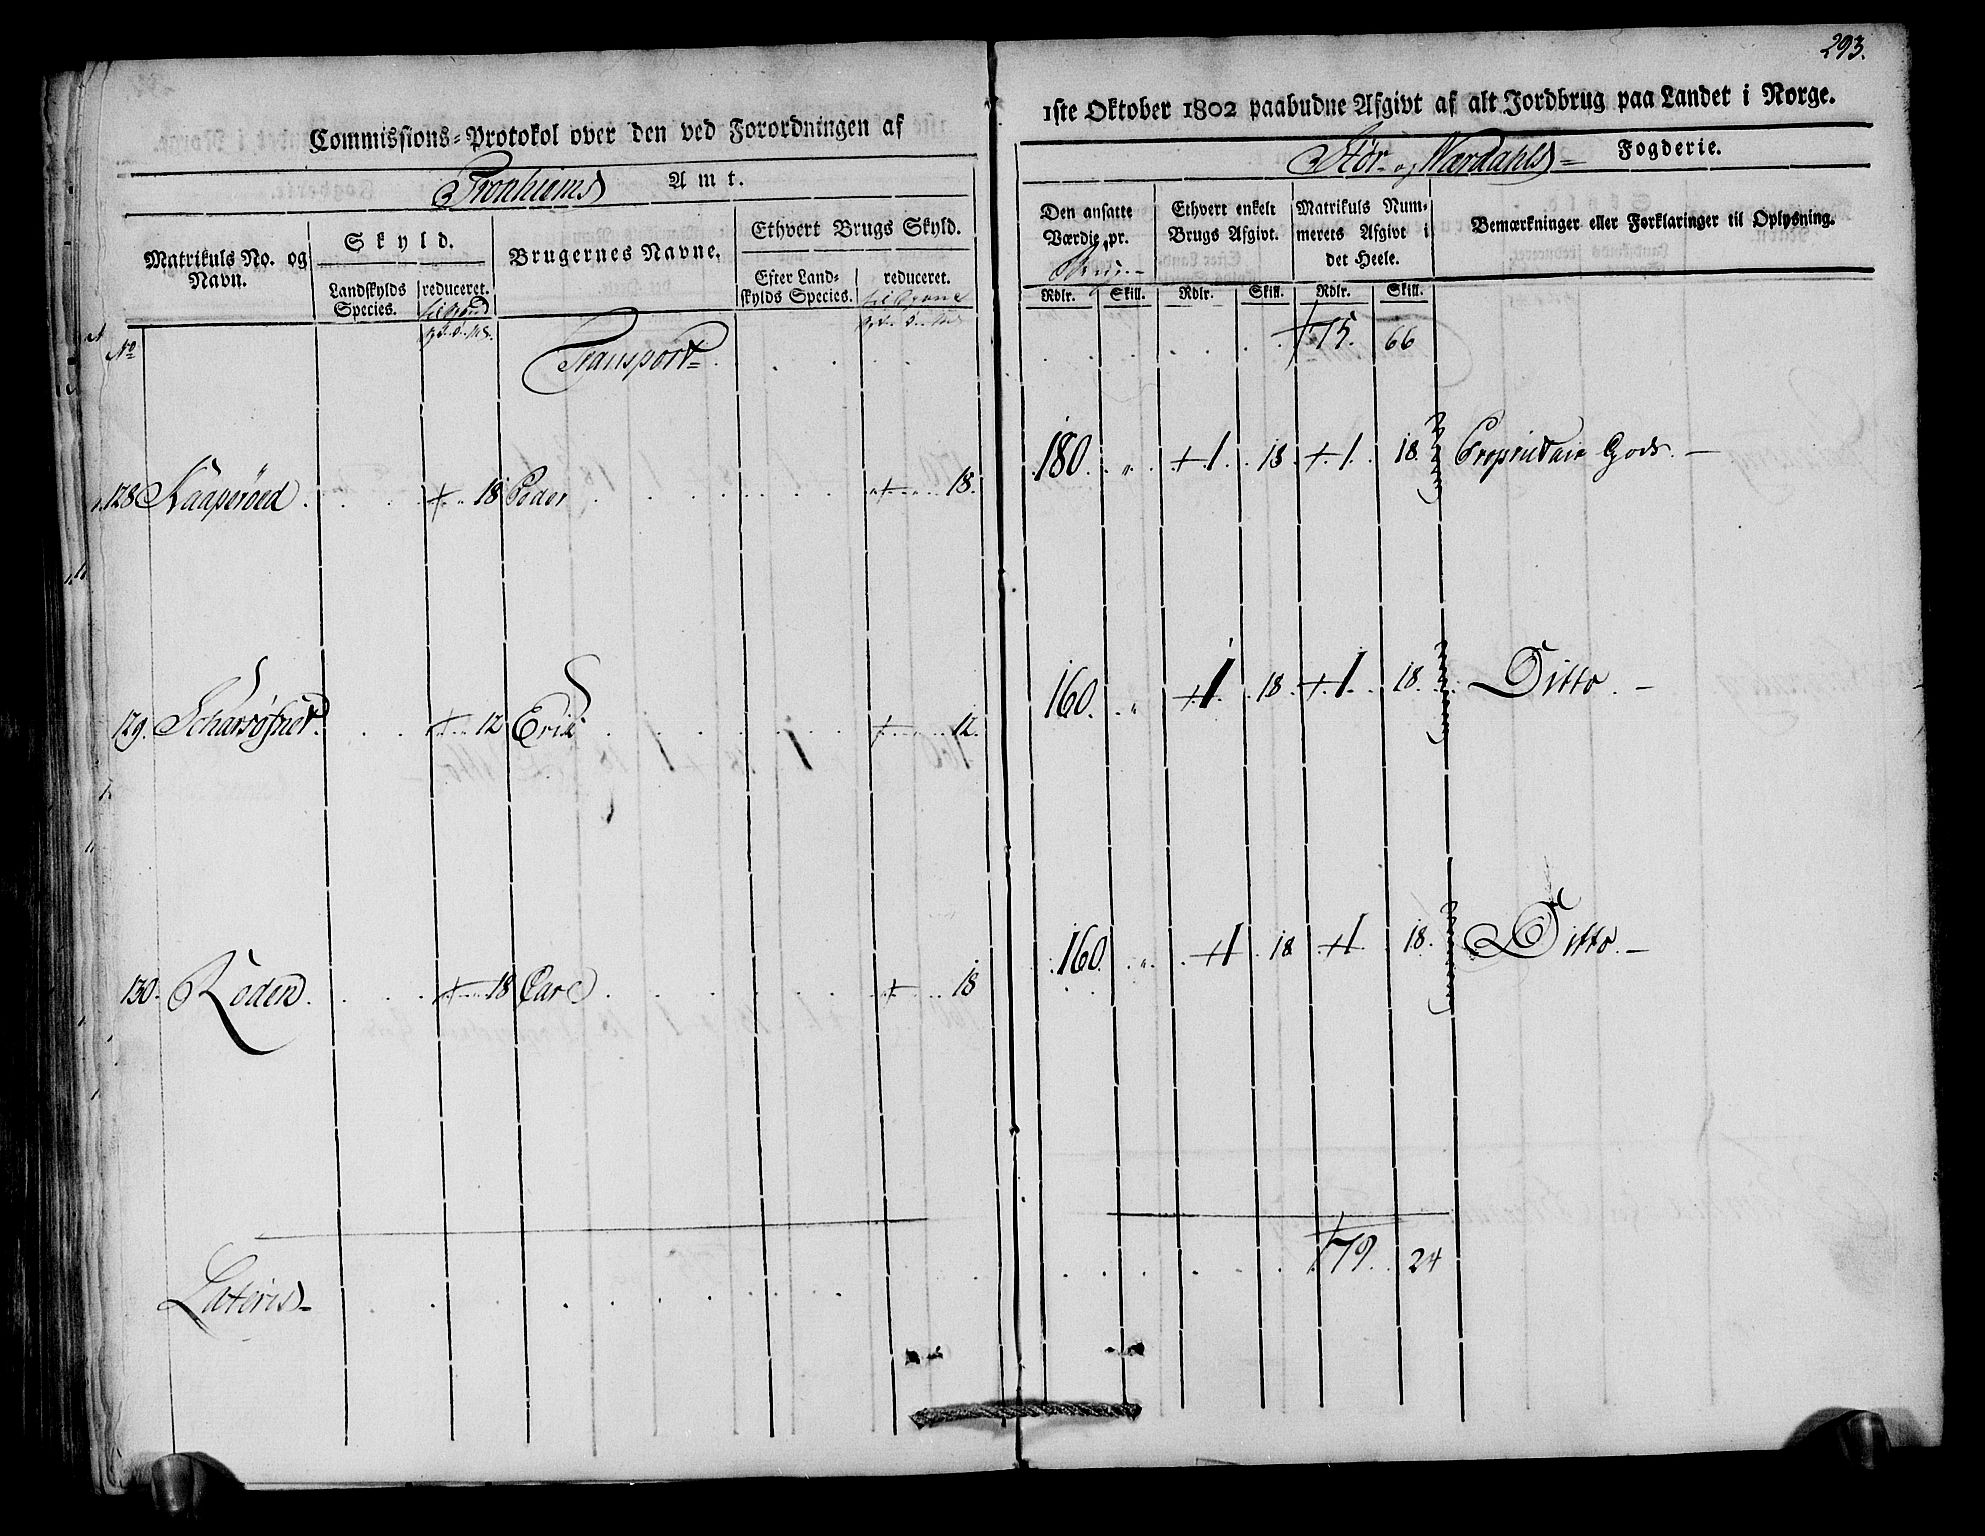 293.
Commissions=Protokol over den ved Forordningen af
1ste Oktober 1802 paabudne Afgivt af alt Jordbrug paa Landet i Norge.
Tronhiems Amt.
Stör- og Værdahls= Fogderie.
Matrikuls No. og Navn.
Skyld.
Landskylds Species.
reduceret.
Brugernes Navne.
Ethvert Brugs Skyld.
Efter Landskylds Species.
reduceret.
Den ansatte Værdie pr.
Ethvert enkelt Brugs Afgivt.
Matrikuls Nummerets Afgivt i det Heele.
Bemærkninger eller Forklaringer til Oplysning.
Rdlr. Skill. Rdlr. Skill. Rdlr. Skill.
No
Transport 175. 66
128 Kaaperöed . . . 18 Peder . . . 18. 180. " 1. 18 1. 18. Proprietair Gods. —
129. . . . 12 Eric . . . 12. 160. " 1. 18 1. 18. Ditto. —
130. Röden . . . 18 Care . . . 18 160. " 1 18 1 18. Ditto. —
Lateris . . . 179. 24